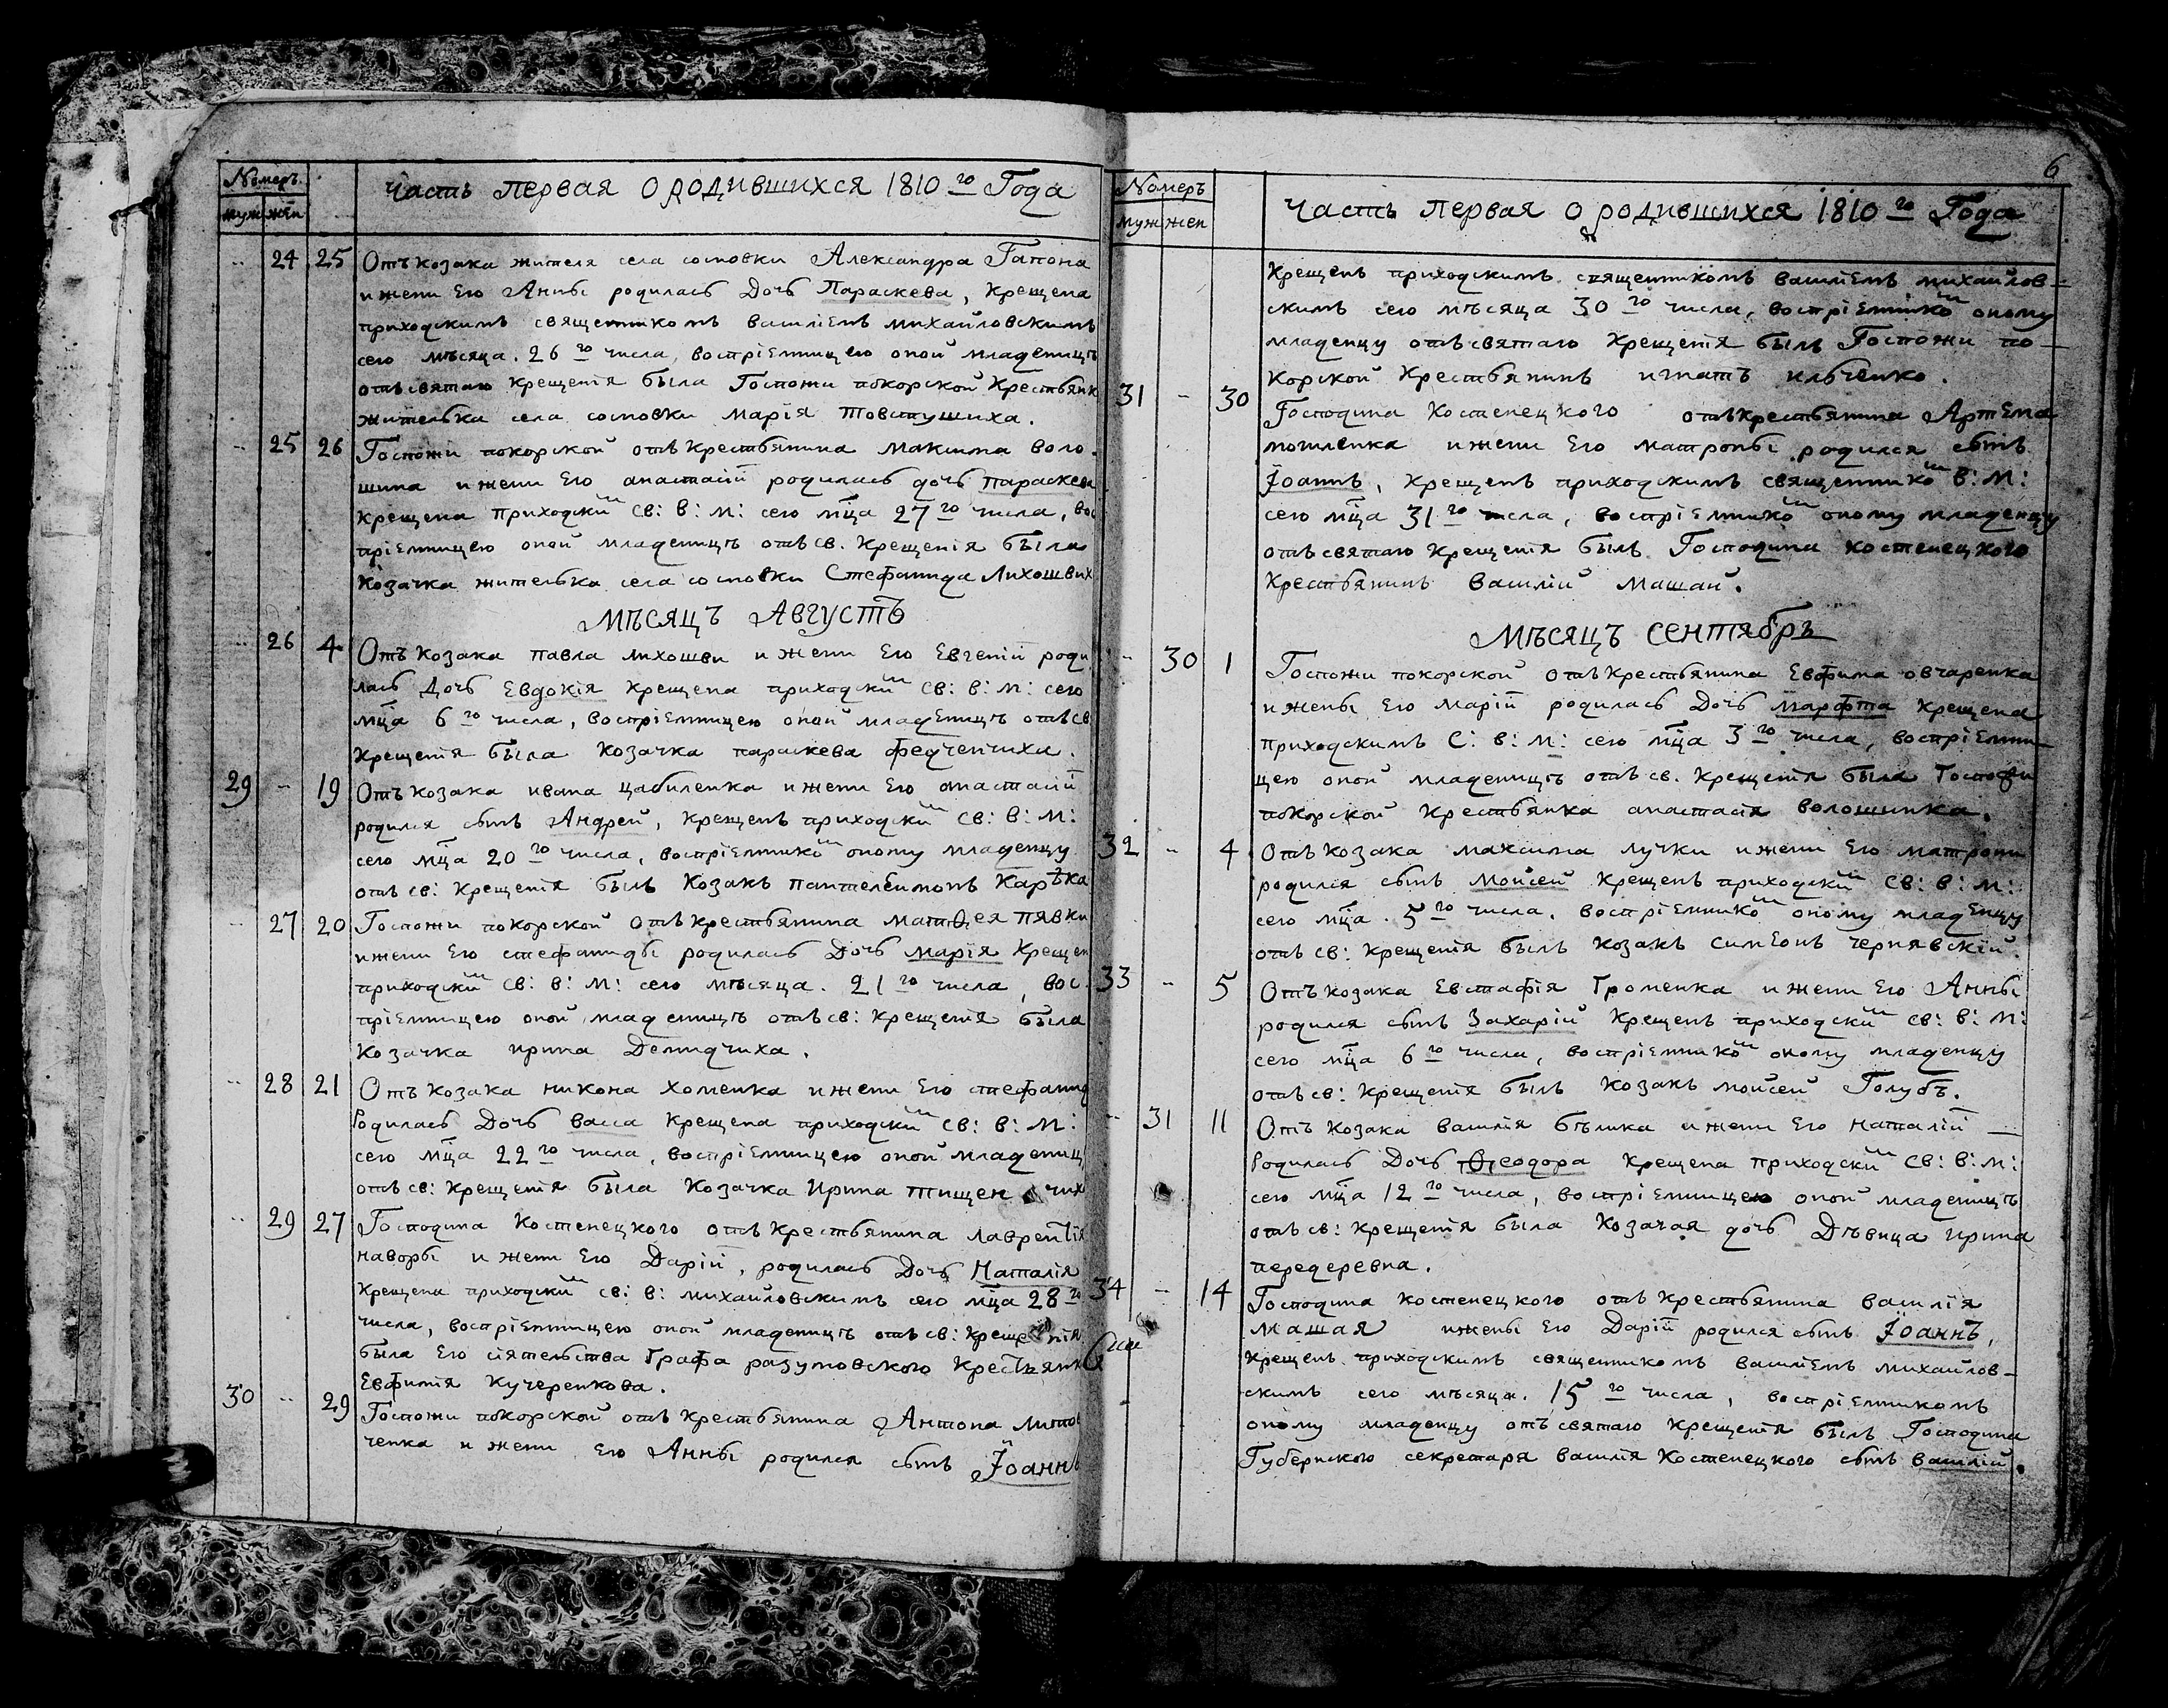 Номеръ
муж жен
Часть первая о родившихся 1810 го Года
24 25 Отъ козака жителя села сосновки Александра Гапона
и жени Его Анны родилась Дочь Параскева, Крещена
приходскимъ священникомъ василіемъ михайловскимъ
сего мѣсяца. 26 го числа, воспріемницею оной младеницѣ
отъ святаго крещенія была Госпожи покорской Крестьянк
жителька села сосновки Марія Товстушиха.
25 26 Госпожи покорской отъ крестьянина максима воло-
шина и жени Его анастасіи родилась дочь параскев
крещена приходски св: в: м: сего мца 27 го числа, вос
пріемницею оной младеницѣ отъ св. Крещенія была
Козачка жителька села сосновки Стефанида Лихошвих
Мѣсяцъ Августъ
26 4 Отъ козака павла лихошви и жени Его Евгеніи роди
лась Дочь Евдокія крещена приходскимъ св: в: м: сего
мца 6 го числа, воспріемницею оной младеницѣ отъ св
крещенія была козачка параскева федченчиха.
29 19 Отъ козака ивана цабиленка и жени Его анастасіи
родился сынъ Андрей, крещенъ приходскимъ св: в: м:
сего мца 20 го числа, воспріемникомъ оному младенцу
отъ св: Крещенія былъ Козакъ пантелеимонъ Карѣка
27 20 Госпожи покорской отъ крестьянина матѳея пявки
и жени Его стефаниды родилась Дочь марія Крещен
приходскимъ св: в: м: сего мѣсяца. 21 го числа, вос-
пріемницею оной младеницѣ отъ св: крещенія была
козачка ирина Демидчиха.
28 21 Отъ козака никона хоменка и жени Его стефанид
Родилась Дочь васса крещена приходскимъ св: в: м:
сего мца 22 го числа, воспріемницею оной младениц
отъ св: крещенія была козачка Ирина тищен чих
29 27 Господина Костенецкого отъ крестьянина лаврентія
наворы и жени Его Даріи, родилась Дочь Наталія
крещена приходскимъ св: в: михайловскимъ сего мца 28 го
числа, воспріемницею оной младеницѣ отъ св: крещенія
была Его сіятельства Графа разумовского крестьянка
Евфимія Кучеренкова.
30 29 Госпожи покорской отъ крестьянина Антона
ченка и жени Его Анны родился сынъ Іоаннъ
6
Номеръ
муж жен
Часть первая о родившихся 1810 го Года
крещенъ приходскимъ священникомъ василіемъ михайлов-
скимъ сего мѣсяца 30 го числа, воспріемникомъ оному
младенцу отъ святаго крещенія былъ Госпожи по-
корской крестьянинъ игнатъ ильченко.
31 30 Господина Костенецкого отъ крестьянина Артема
могиленка и жени Его матроны родился сынъ
Іоаннъ, крещенъ приходскимъ священникомъ в: м:
сего мца 31 го числа, воспріемникомъ оному младенцу
отъ святаго крещенія былъ Господина костенецкого
крестьянинъ василій машай.
Мѣсяцъ Сентябрь
30 1 Госпожи покорской отъ крестьянина Евфима овчаренка
и жены Его маріи родилась Дочь марфта крещена
приходскимъ С: в: м: сего мца 3 го числа, воспріемни-
цею оной младеницѣ отъ св. крещенія была Госпожи
покорской крестьянка анастасія волошинка.
32 4 Отъ козака максима лучки и жени Его матрони
родился сынъ моисей крещенъ приходскимъ св: в: м:
сего мца. 5 го числа. воспріемникомъ оному младенцу
отъ св: крещенія былъ козакъ симеонъ чернявскій.
33 5 Отъ козака Евстафія Громенка и жени Его Анны
родился сынъ Захарій крещенъ приходскимъ св: в: м:
сего мца 6 го числа, воспріемникомъ оному младенцу
отъ св: крещенія былъ козакъ моисей Голубъ.
31 11 Отъ козака василія бѣлика и жени Его наталіи
Родилась Дочь Ѳеодора крещена приходскимъ св: в: м:
сего мца 12 го числа, воспріемницею оной младеницѣ
отъ св: крещенія была козачая дочь Дѣвица ирина
передеревна.
34 14 Господина костенецкого отъ крестьянина василія
машая и жены Его Даріи родился сынъ Іоаннъ,
крещенъ приходскимъ священникомъ василіемъ михайлов-
скимъ сего мѣсяца. 15 го числа, воспріемникомъ
оному младенцу отъ святаго крещенія былъ Господина
Губернского секретаря василія Костенецкого сынъ василій.